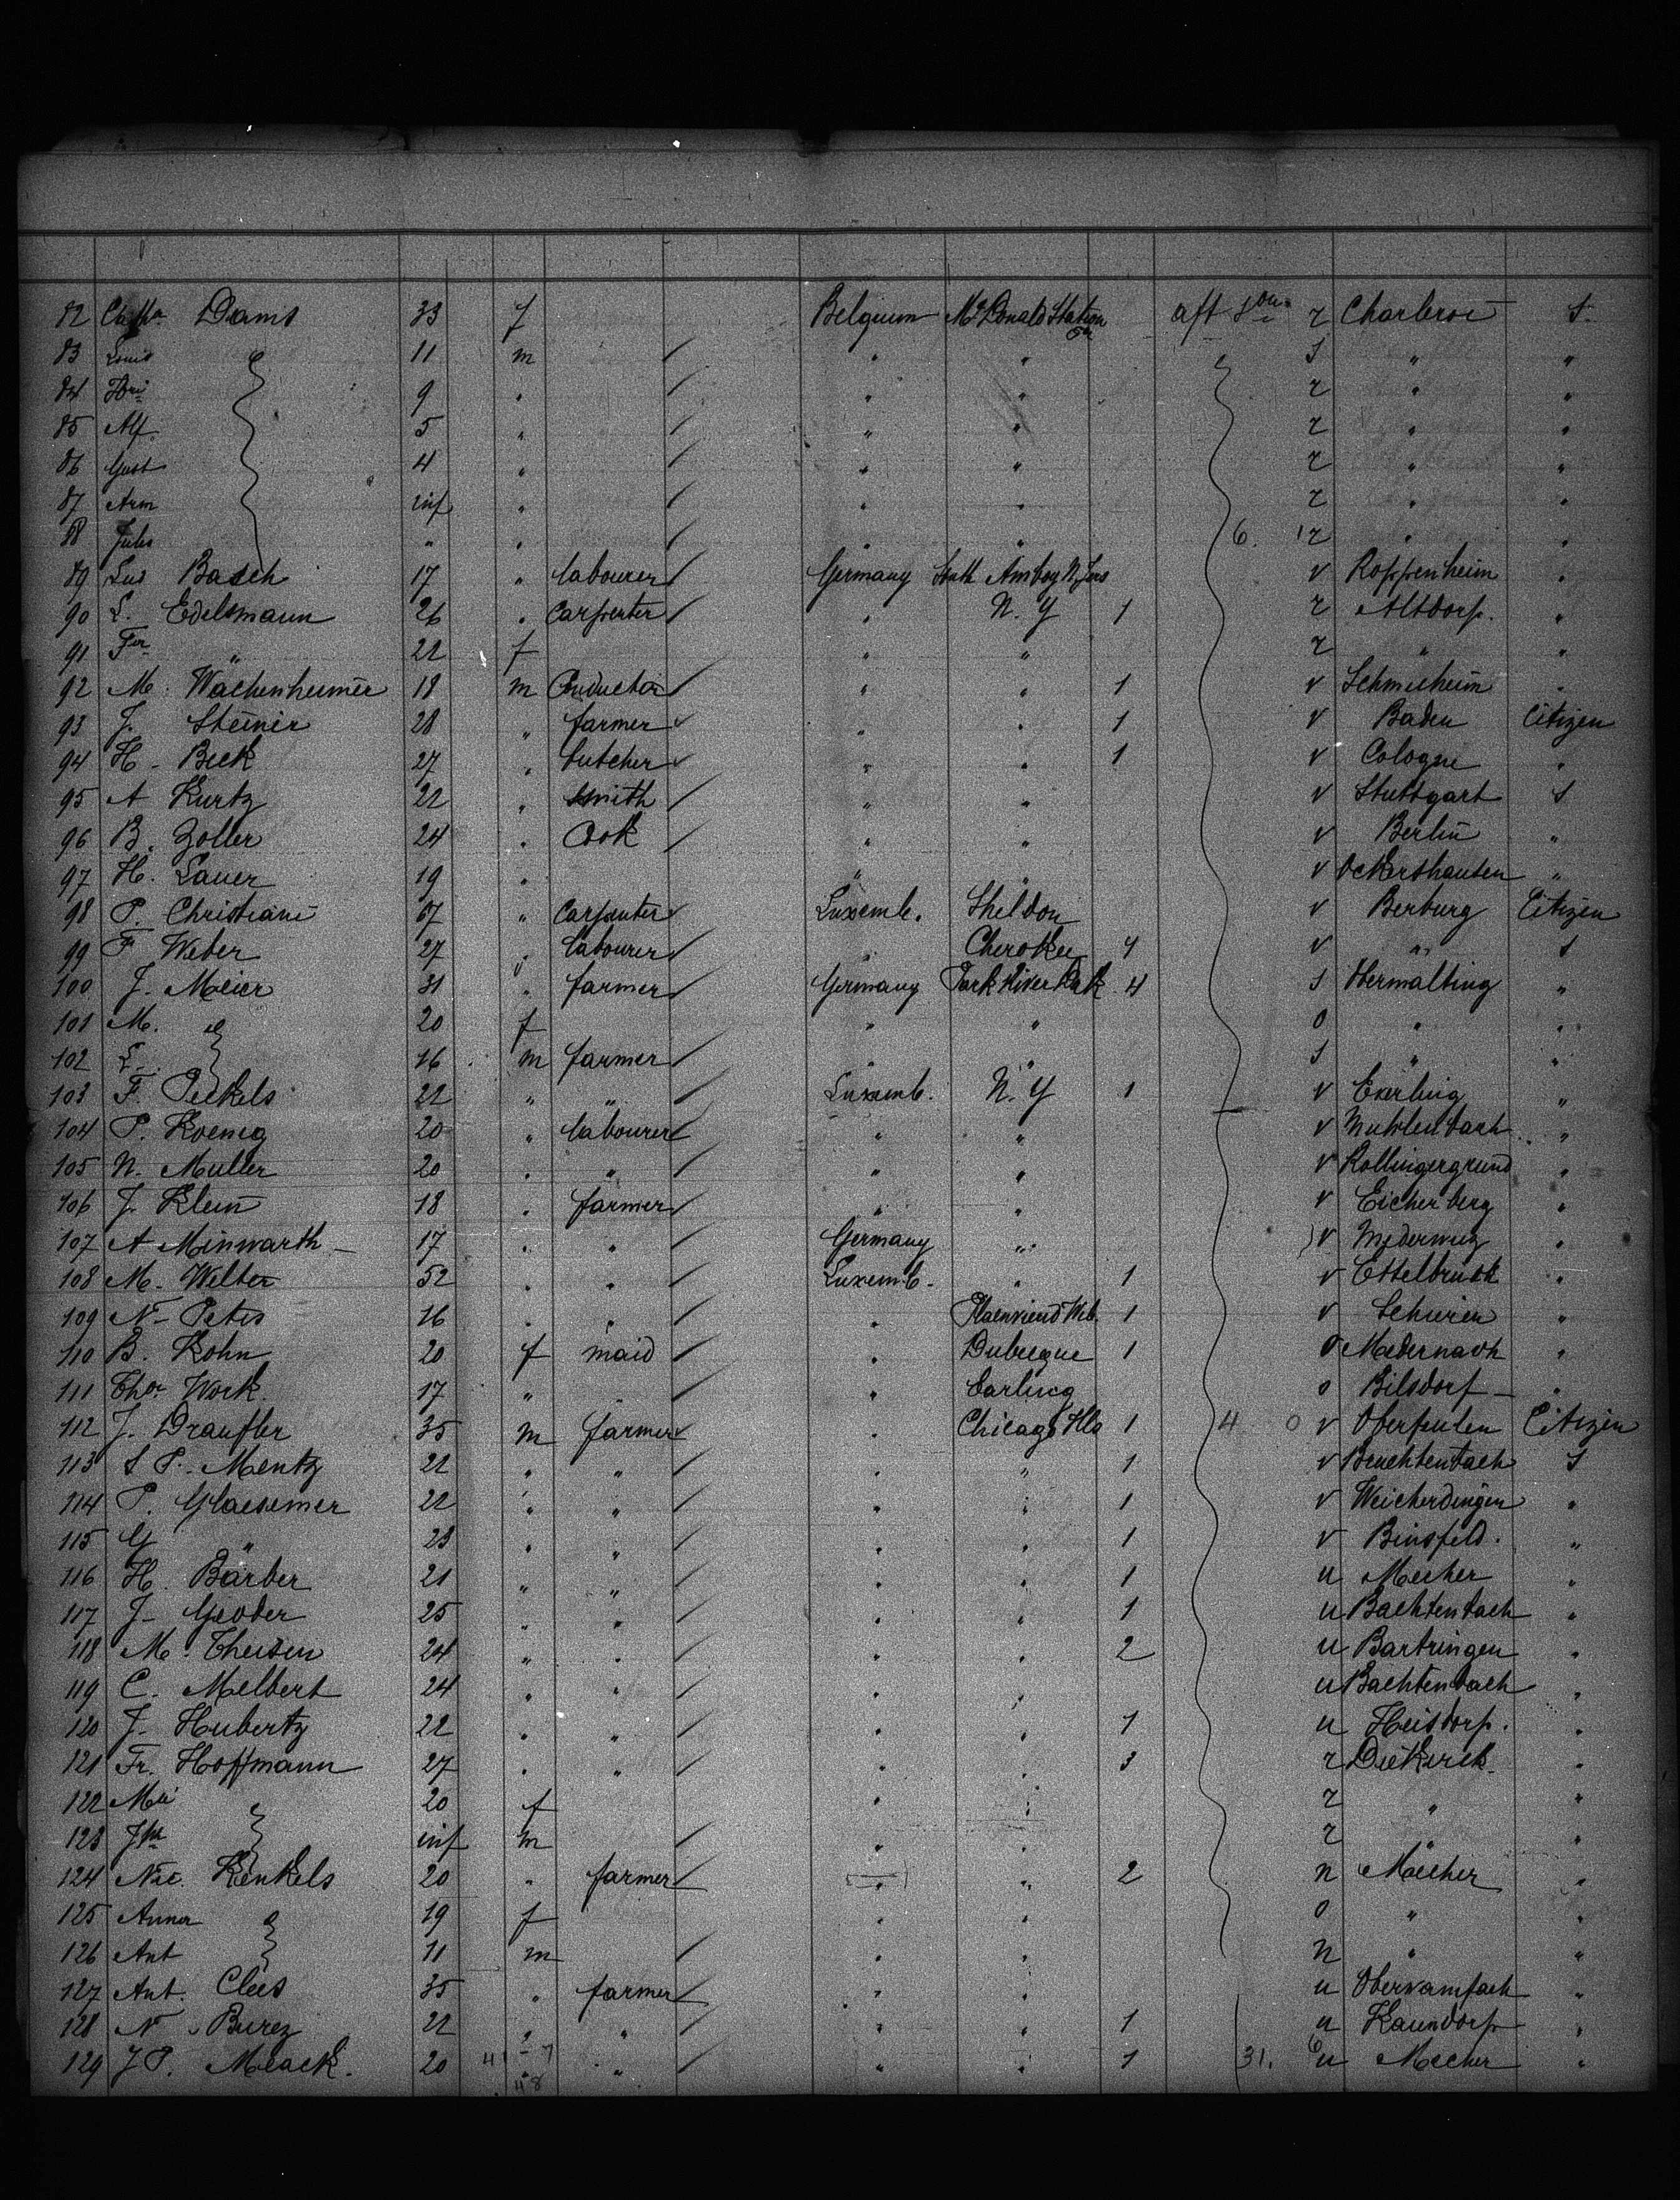 82 Dams 33 f Belgium McDonald Station aft Charleroi S.
Pa
83 Louis 11 m " " S " "
84 9 " " " r " "
85 Alf. 5 " " " r " "
86 Gust 4 " " " r " "
87 Arm inf " " " r " "
88 Jules " " " " 6. r " "
89 Basch 17 " labourer Germany South Amboy N. Jers v Roppenheim "
90 L. Edelsmann 26 " Carpenter " N. Y 1 r Altdorf. "
91 Fr " 22 f " " r " "
92 M. Wachenheimer 18 m Conductor " " 1 v Schmieheim "
93 J. Steinir 28 " farmer " " 1 v Baden Citizen
94 H - Beck 27 " butcher " " 1 v Cologne "
95 A Kurtz 22 " smith " " v Stuttgart S
96 B. Zoller 24 " Cook " " v Berlin "
97 H. Lauer 19 " " " v Ockershausen "
98 P. Christiani 67 " Carpenter Luxemb. Sheldon v Berburg Citizen
99 F Weber 27 " labourer " Cherokee 4 v " S
100 J. Meier 31 " farmer Germany Park River Dak 4 S Obermalting "
101 M. 20 f " " o " "
102 L. 16 m farmer " " S " "
103 F. Peckels 22 " " Luxemb. N. Y 1 v Everling "
104 P. Koenig 20 " labourer " " v Muhlenbach "
105 N. Muller 20 " " " " v Rollingergrund "
106 J. Klein 18 " farmer " " v Eicherberg "
107 A Minwarth - 17 " " Germany " v "
108 M. Welter 52 " " Luxemb. " 1 v Ettelbruck "
109 N - Peters 16 " " " 1 v Schieren "
110 B. Kohn 20 f maid " Dubuque 1 o Medernach "
111 Work 17 " " Earling o Bilsdorf - "
112 J. Draufler 35 m farmer " Chicago Ills 1 4 0 v Citizen
113 S P. Mentz 22 " " " " 1 v S
114 P. Glaesemer 22 " " " " 1 v Weicherdingen "
115 G " 23 " " " " 1 v Binsfeld. "
116 H. Barber 21 " " " " 1 u Mecher "
117 J - Geoder 25 " " " " 1 u Bachtenbach "
118 M. Theisen 24 " " " " 2 u Bartringen "
119 C. Melbert 24 " " " " u Bachtenbach "
120 J - Hubertz 22 " " " " 1 u Heisdorf. "
121 Fr. Hoffmann 27 " " " " 3 r Diekirch. "
122 20 f " " r " "
123 inf m " " r " "
124 Nic. Kenkels 20 " farmer " " 2 n Mecher "
125 Anna 19 f " " o " "
126 Ant 11 m " " n " "
127 Ant. Clees 35 " farmer " " u Oberwampach "
128 N. Burez 22 " " " " 1 u Kaundorf "
129 J P. Meack. 20 " " " " 1 31. u Mecher "